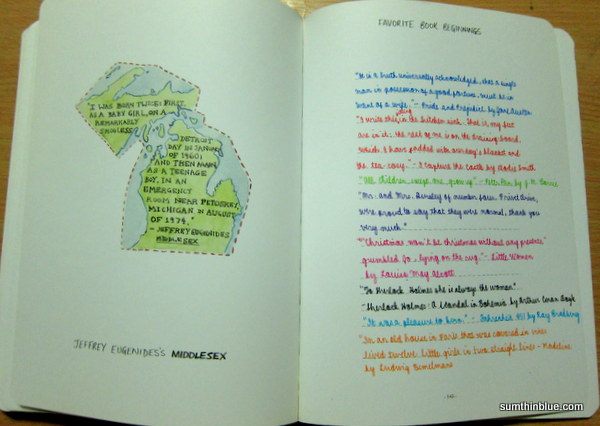 "I WAS BORN TWICE: FIRST,
AS A BABY GIRL, ON A
REMARKABLY
SMOGLESS
DETROIT
DAY IN JANUARY
OF 1960;
AND THEN AGAIN,
AS A TEENAGE
BOY, IN AN
EMERGENCY
ROOM NEAR PETOSKEY,
MICHIGAN, IN AUGUST
OF 1974."
- JEFFREY EUGENIDES
MIDDLESEX
JEFFREY EUGENIDES'S MIDDLESEX
FAVORITE BOOK BEGINNINGS
"It is a truth universally acknowledged, that a single
man in possession of a good fortune, must be in
want of a wife." - Pride and Prejudice by Jane Austen
"I write this sitting in the kitchen sink. That is, my feet
are in it; the rest of me is on the draining-board,
which I have padded with our dog's blanket and
the tea-cosy." - I Capture the Castle by Dodie Smith
"All children, except one, grow up." - Peter Pan by J.M. Barrie
"Mr. and Mrs. Dursley of number four, Privet Drive,
were proud to say that they were normal, thank you
very much."
"Christmas won't be Christmas without any presents"
grumbled Jo, lying on the rug. - Little Women
by Louisa May Alcott
"To Sherlock Holmes she is always the woman."
- Sherlock Holmes: A Scandal in Bohemia by Arthur Conan Doyle
"It was a pleasure to burn." - Fahrenheit 451 by Ray Bradbury
"In an old house in Paris that was covered in vines
lived twelve little girls in two straight lines - Madeline
by Ludwig Bemelmans
sumthinblue.com